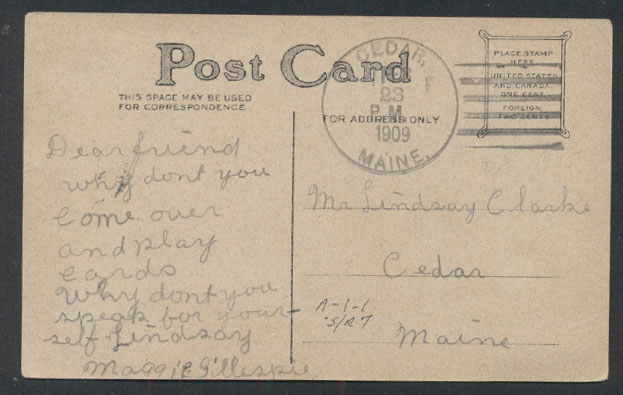 Post Card
THIS SPACE MAY BE USED
FOR CORRESPONDENCE.
FOR ADDRESS ONLY
CEDAR,
23
P.M.
1909
MAINE.
PLACE STAMP
HERE
UNITED STATES
AND CANADA
ONE CENT
FOREIGN
TWO CENTS
Dear friend
why dont you
come over
and play
cards
Why dont you
speak for your-
self Lindsay
Maggie Gillespie
Mr Lindsay Clarke
Cedar
Maine
A-1-1